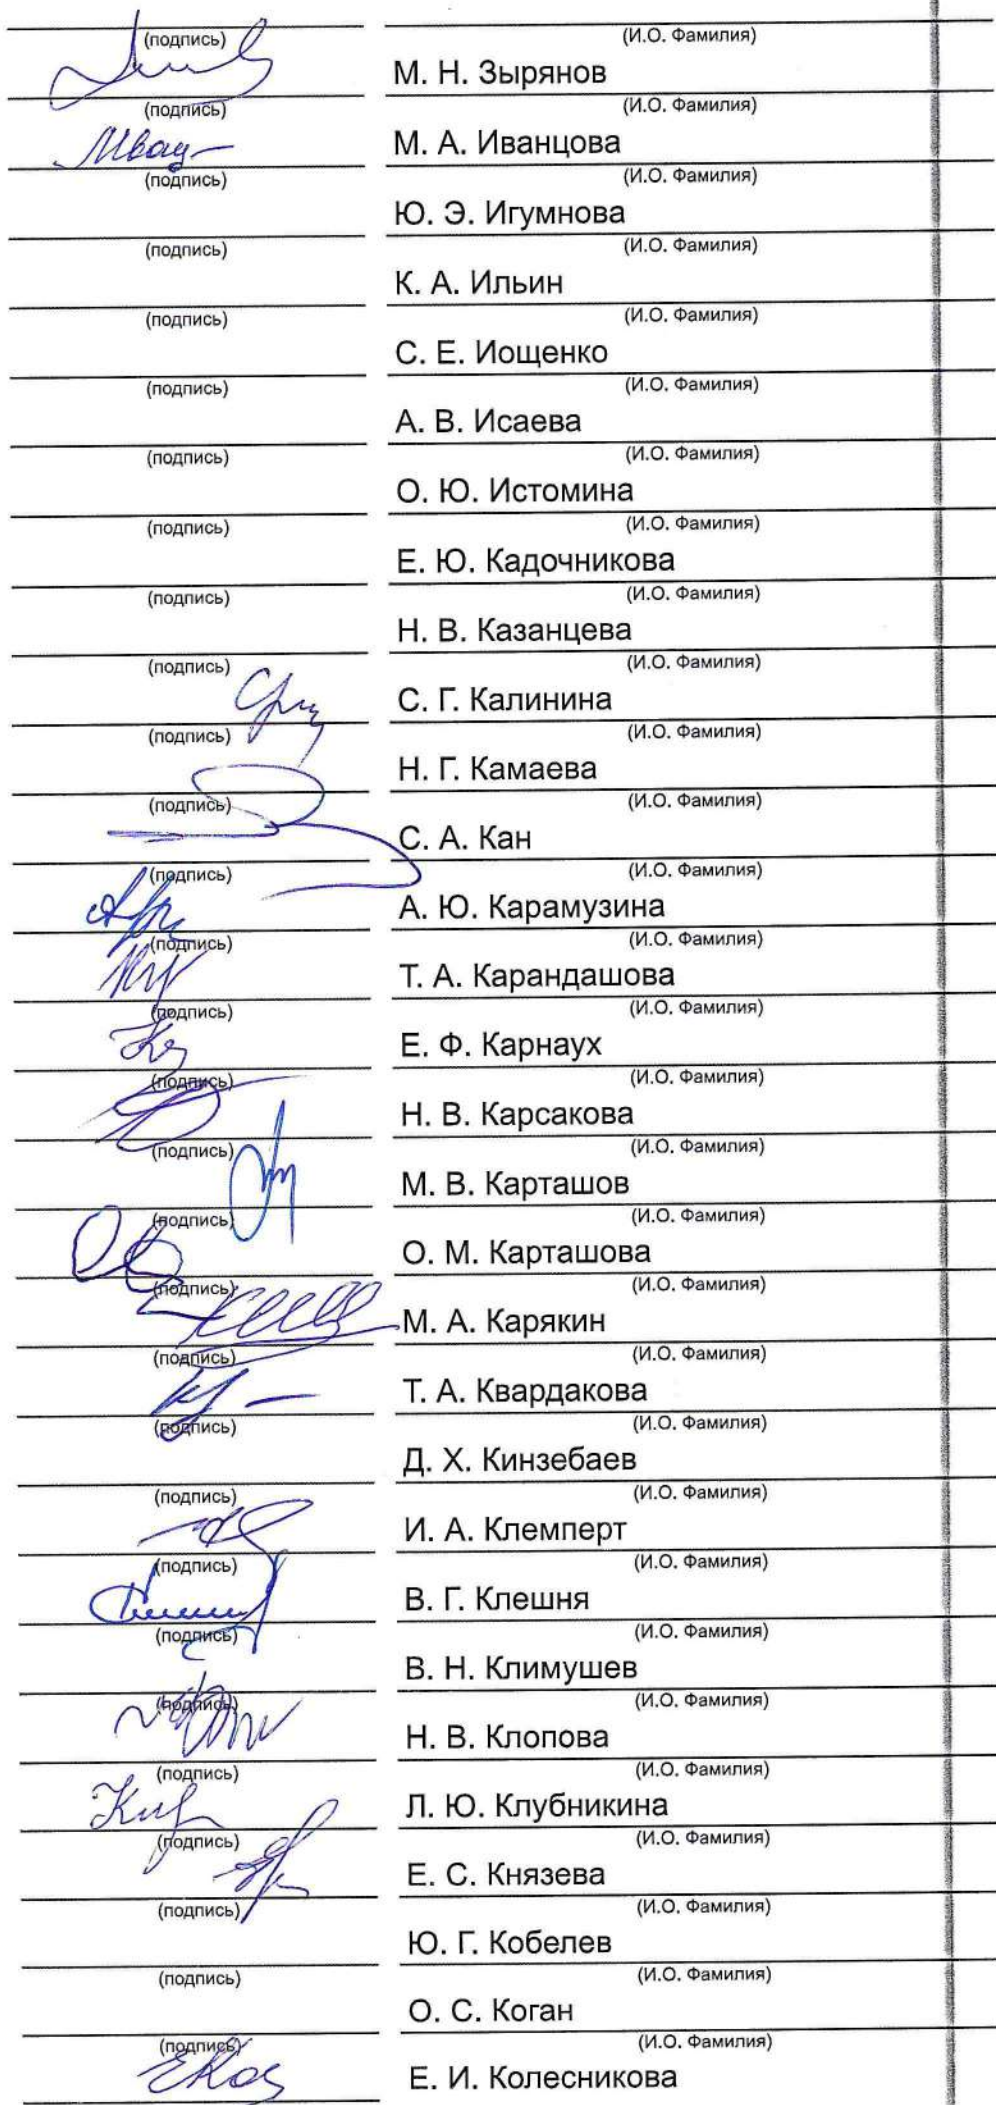 (подпись) (И.О. Фамилия)
М. Н. Зырянов
(подпись) (И.О. Фамилия)
М. А. Иванцова
(подпись) (И.О. Фамилия)
Ю. Э. Игумнова
(подпись) (И.О. Фамилия)
К. А. Ильин
(подпись) (И.О. Фамилия)
С. Е. Иощенко
(подпись) (И.О. Фамилия)
А. В. Исаева
(подпись) (И.О. Фамилия)
О. Ю. Истомина
(подпись) (И.О. Фамилия)
Е. Ю. Кадочникова
(подпись) (И.О. Фамилия)
Н. В. Казанцева
(подпись) (И.О. Фамилия)
С. Г. Калинина
(подпись) (И.О. Фамилия)
Н. Г. Камаева
(подпись) (И.О. Фамилия)
С. А. Кан
(подпись) (И.О. Фамилия)
А. Ю. Карамузина
(подпись) (И.О. Фамилия)
Т. А. Карандашова
(подпись) (И.О. Фамилия)
Е. Ф. Карнаух
(подпись) (И.О. Фамилия)
Н. В. Карсакова
(подпись) (И.О. Фамилия)
М. В. Карташов
(подпись) (И.О. Фамилия)
О. М. Карташова
(подпись) (И.О. Фамилия)
М. А. Карякин
(подпись) (И.О. Фамилия)
Т. А. Квардакова
(подпись) (И.О. Фамилия)
Д. Х. Кинзебаев
(подпись) (И.О. Фамилия)
И. А. Клемперт
(подпись) (И.О. Фамилия)
В. Г. Клешня
(подпись) (И.О. Фамилия)
В. Н. Климушев
(подпись) (И.О. Фамилия)
Н. В. Клопова
(подпись) (И.О. Фамилия)
Л. Ю. Клубникина
(подпись) (И.О. Фамилия)
Е. С. Князева
(подпись) (И.О. Фамилия)
Ю. Г. Кобелев
(подпись) (И.О. Фамилия)
О. С. Коган
(подпись) (И.О. Фамилия)
Е. И. Колесникова